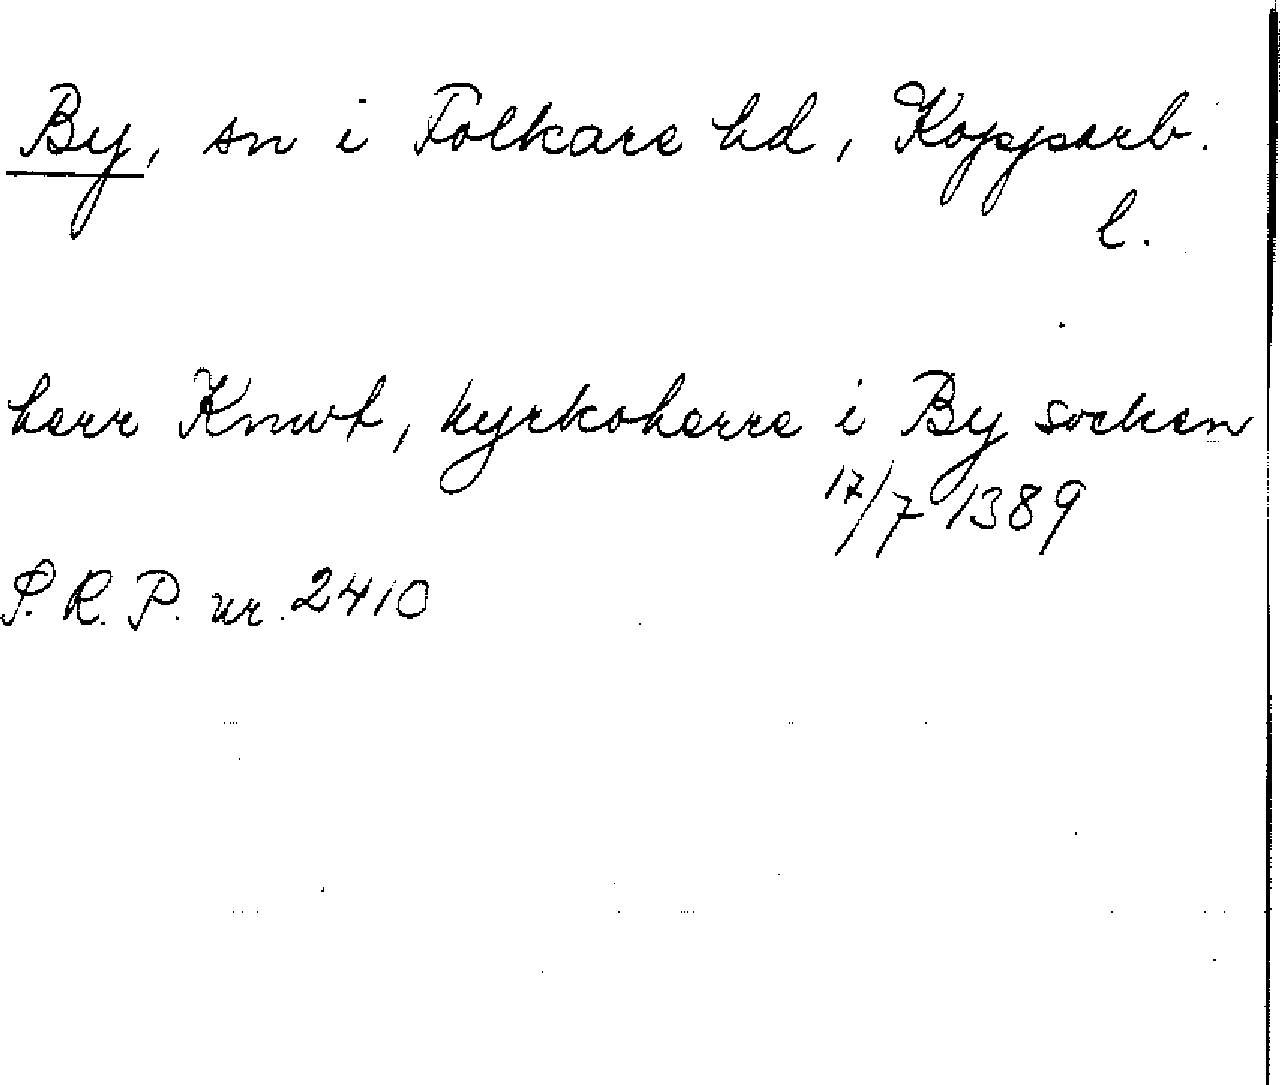 By, sn i Folkare hd, Kopparb.
l.
herr Knut, kyrkoherre i By socken
17/7 1389
S.R.P. nr. 2410